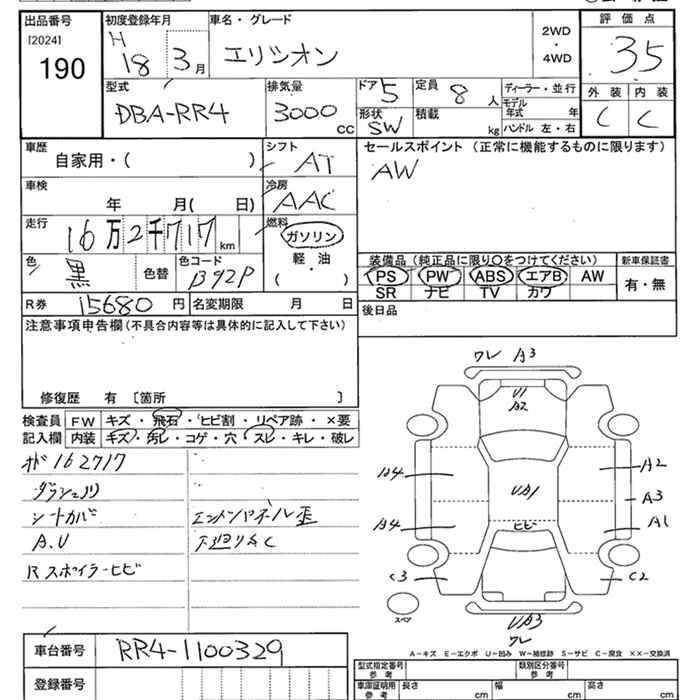 出品番号
[2024]
190
初度登録年月
H
18 3月
車名・グレード
エリシオン
2WD
・
4WD
評価点
3.5
外装 内装
C C
型式
DBA-RR4
排気量
3000
CC
ドア 5
形状
SW
定員 8 人
積載 kg
ディーラー・並行
モデル
年式 年
ハンドル 左・右
車歴
自家用・( )
シフト
AT
セールスポイント (正常に機能するものに限ります)
AW
車検
年 月( 日)
冷房
AAC
走行
16万2千717km
燃料
ガソリン
軽油
・
( )
色
黒 色替
色コード
B92P
装備品 (純正品に限り○をつけてください) 新車保証書
PS PW ABS エアB AW
SR ナビ TV カワ
有・無
R券 15680 円 名変期限 月 日
後日品
注意事項申告欄(不具合内容等は具体的に記入して下さい)
修復歴 有 〔箇所 〕
検査員
記入欄
FW キズ・飛石・ヒビ割・リペア跡・×要
内装 キズ・汚レ・コゲ・穴・スレ・キレ・破レ
162717
シートカバ
A.U
Rスポイラーヒビ
エンジンパネル歪
下廻りSC
ワレ A3
U1
A2
A4
UA1
A2
A3
A4
ヒビ
A1
C3
C2
スペア
UA3
ワレ
A-キズ E-エクボ U-凹み W-補修跡 S-サビ C-腐食 ××-交換済
車台番号 RR4-1100329
登録番号
型式指定番号
参考
類別区分番号
参考
車庫証明用
参考
長さ cm 幅 cm 高さ cm